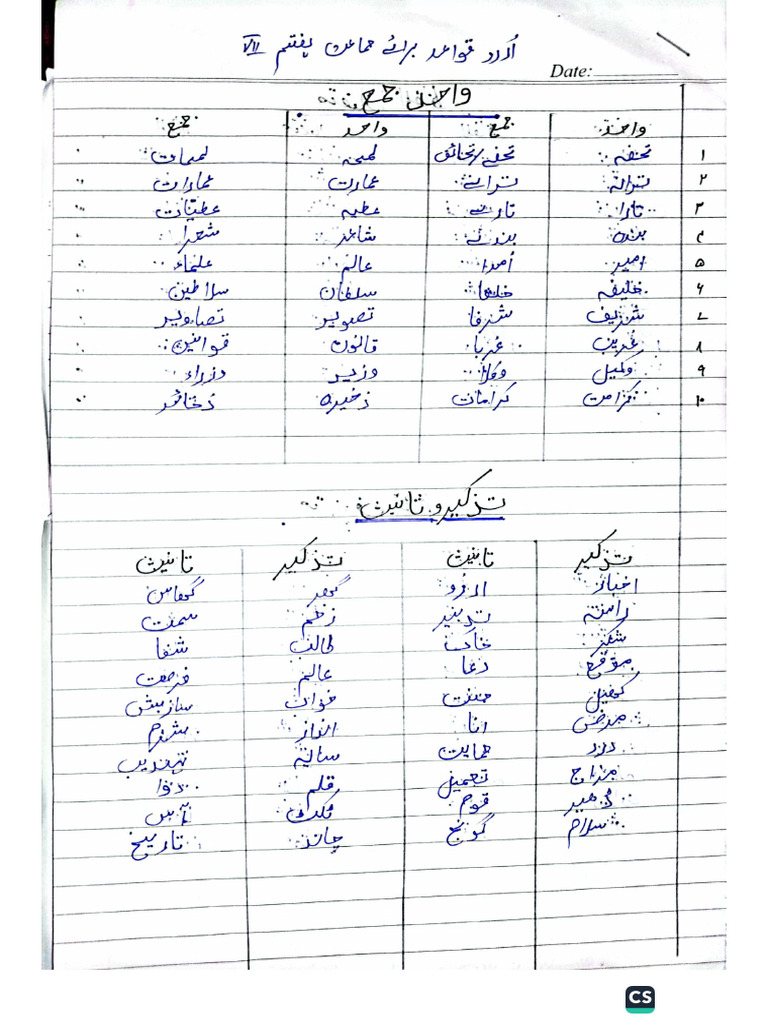 اردو قواعد برائے جماعت ہفتم VII
Date:
واحد جمع
واحد جمع واحد جمع
۱ تحفہ تحفے/تحائف لمحہ لمحات
۲ ترانہ ترانے عمارت عمارات
۳ تارا تارے عطیہ عطیات
۴ بندہ بندے شاعر شعرا
۵ امیر اُمرا عالم علماء
۶ خلیفہ خلفا سلطان سلاطین
۷ شریف شرفا تصویر تصاویر
۸ غریب غربا قانون قوانین
۹ وکیل وکلا وزیر وزراء
۱۰ کرامت کرامات ذخیرہ ذخائر
تذکیر و تانیث
تذکیر تانیث تذکیر تانیث
اخبار اردو گھر گھاس
راستہ تدبیر زخم سمت
شکر خاک طالب شفا
موقع دعا عالم فرصت
کھیل محنت خواب سازش
مرض انا انداز شرم
درد حمایت سایہ تہذیب
مزاج تعمیل قلم دوا
ڈھیر قوم ملک آس
سلام گونج چاند تاریخ
CS